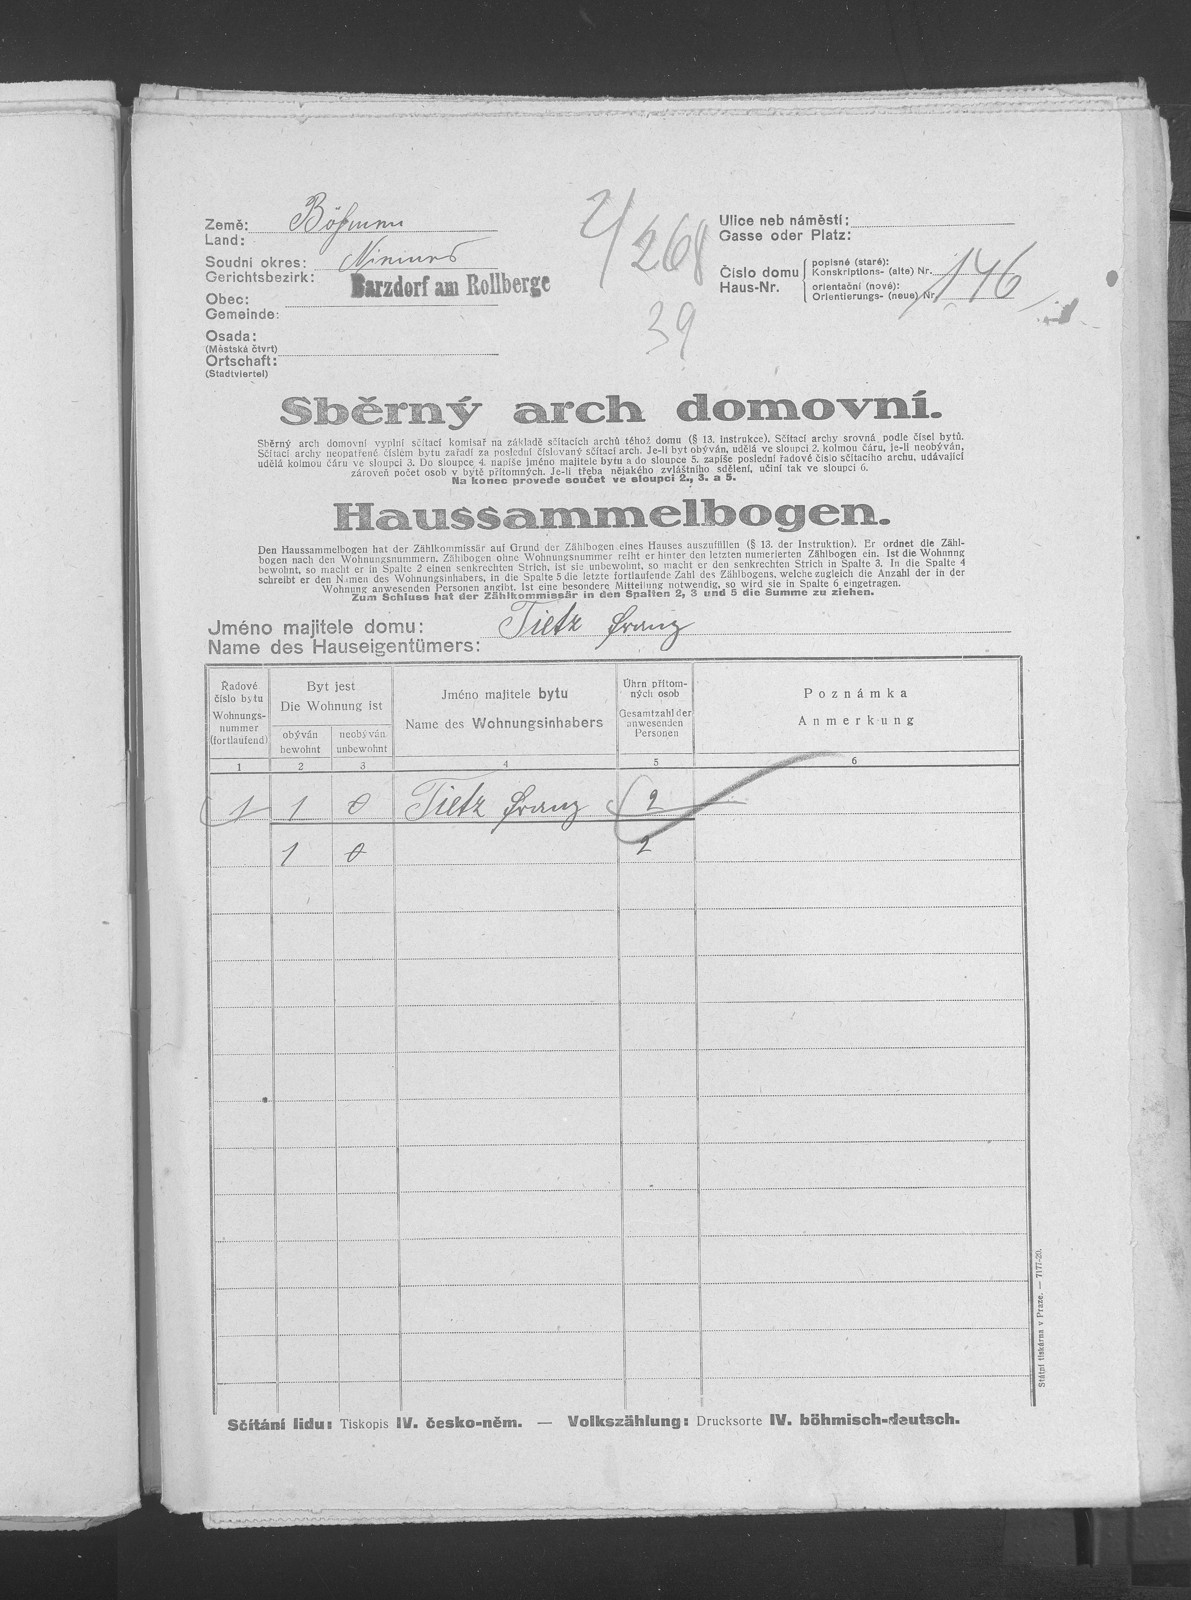 Země: Böhmen
Land:
Soudní okres: Niemes
Gerichtsbezirk:
Barzdorf am Rollberge
Obec:
Gemeinde:
Osada:
(Městská čtvrt)
Ortschaft:
(Stadtviertel)
2/268
39
Ulice neb náměstí:
Gasse oder Platz:
Číslo domu
Haus-Nr.
popisné (staré):
Konskriptions- (alte) Nr.
orientační (nové):
Orientierungs- (neue) Nr.
146
Sběrný arch domovní.
Sběrný arch domovní vyplní sčítací komisař na základě sčítacích archů téhož domu (§ 13. Instrukce). Sčítací archy srovná podle čísel bytů.
Sčítací archy neopatřené číslem bytu zařadí za poslední číslovaný sčítací arch. Je-li byt obýván, udělá ve sloupci 2. kolmou čáru, je-li neobýván,
udělá kolmou čáru ve sloupci 3. Do sloupce 4. napíše jméno majitele bytu a do sloupce 5. zapíše poslední řadové číslo sčítacího archu, udávající
zároveň počet osob v bytě přítomných. Je-li třeba nějakého zvláštního sdělení, učiní tak ve sloupci 6.
Na konec provede součet ve sloupci 2., 3. a 5.
Haussammelbogen.
Den Haussammelbogen hat der Zählkommissär auf Grund der Zählbogen eines Hauses auszufüllen (§ 13. der Instruktion). Er ordnet die Zähl-
bogen nach den Wohnungsnummern. Zählbogen ohne Wohnungsnummer reiht er hinter den letzten numerierten Zählbogen ein. Ist die Wohnung
bewohnt, so macht er in Spalte 2 einen senkrechten Strich, ist sie unbewohnt, so macht er den senkrechten Strich in Spalte 3. In die Spalte 4
schreibt er den Namen des Wohnungsinhabers, in die Spalte 5 die letzte fortlaufende Zahl des Zählbogens, welche zugleich die Anzahl der in der
Wohnung anwesenden Personen angibt. Ist eine besondere Mitteilung notwendig, so wird sie in Spalte 6 eingetragen.
Zum Schluss hat der Zählkommissär in den Spalten 2, 3 und 5 die Summe zu ziehen.
Jméno majitele domu: Tietz Franz
Name des Hauseigentümers:
Řadové
číslo bytu
Wohnungs-
nummer
(fortlaufend)
Byt jest
Die Wohnung ist
obýván
bewohnt
neobýván
unbewohnt
Jméno majitele bytu
Name des Wohnungsinhabers
Úhrn přítom-
ných osob
Gesamtzahl der
anwesenden
Personen
Poznámka
Anmerkung
1 2 3 4 5 6
1 1 0 Tietz Franz 2
1 0 2
Státní tiskárna v Praze. — 7177-20.
Sčítání lidu: Tiskopis IV. česko-něm. — Volkszählung: Drucksorte IV. böhmisch-deutsch.